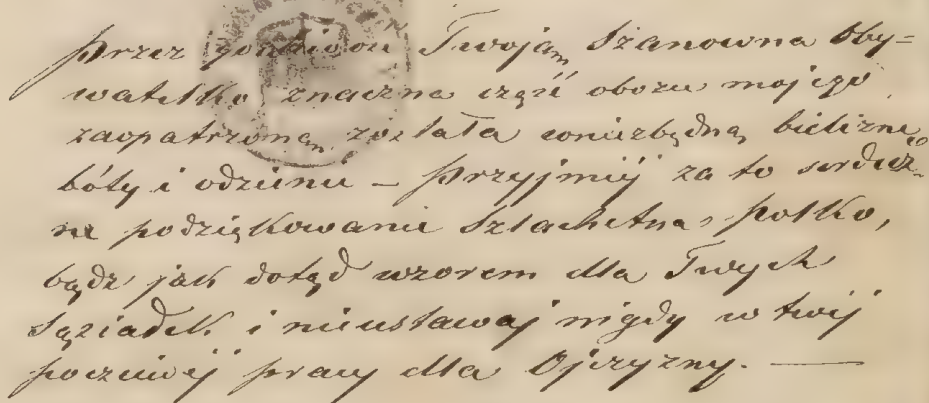 Przez gorliwość Twoją, Szanowna Oby=
watelko znaczna część obozu mojego
zaopatrzoną została w niezbędną bieliznę,
bóty i odzienie – Przyjmij za to serdecz-
ne podziękowanie Szlachetna Polko,
bądź jak dotąd wzorem dla Twych
Sąsiadek i nieustawaj nigdy w twéj
poczciwéj pracy dla Ojczyzny. —